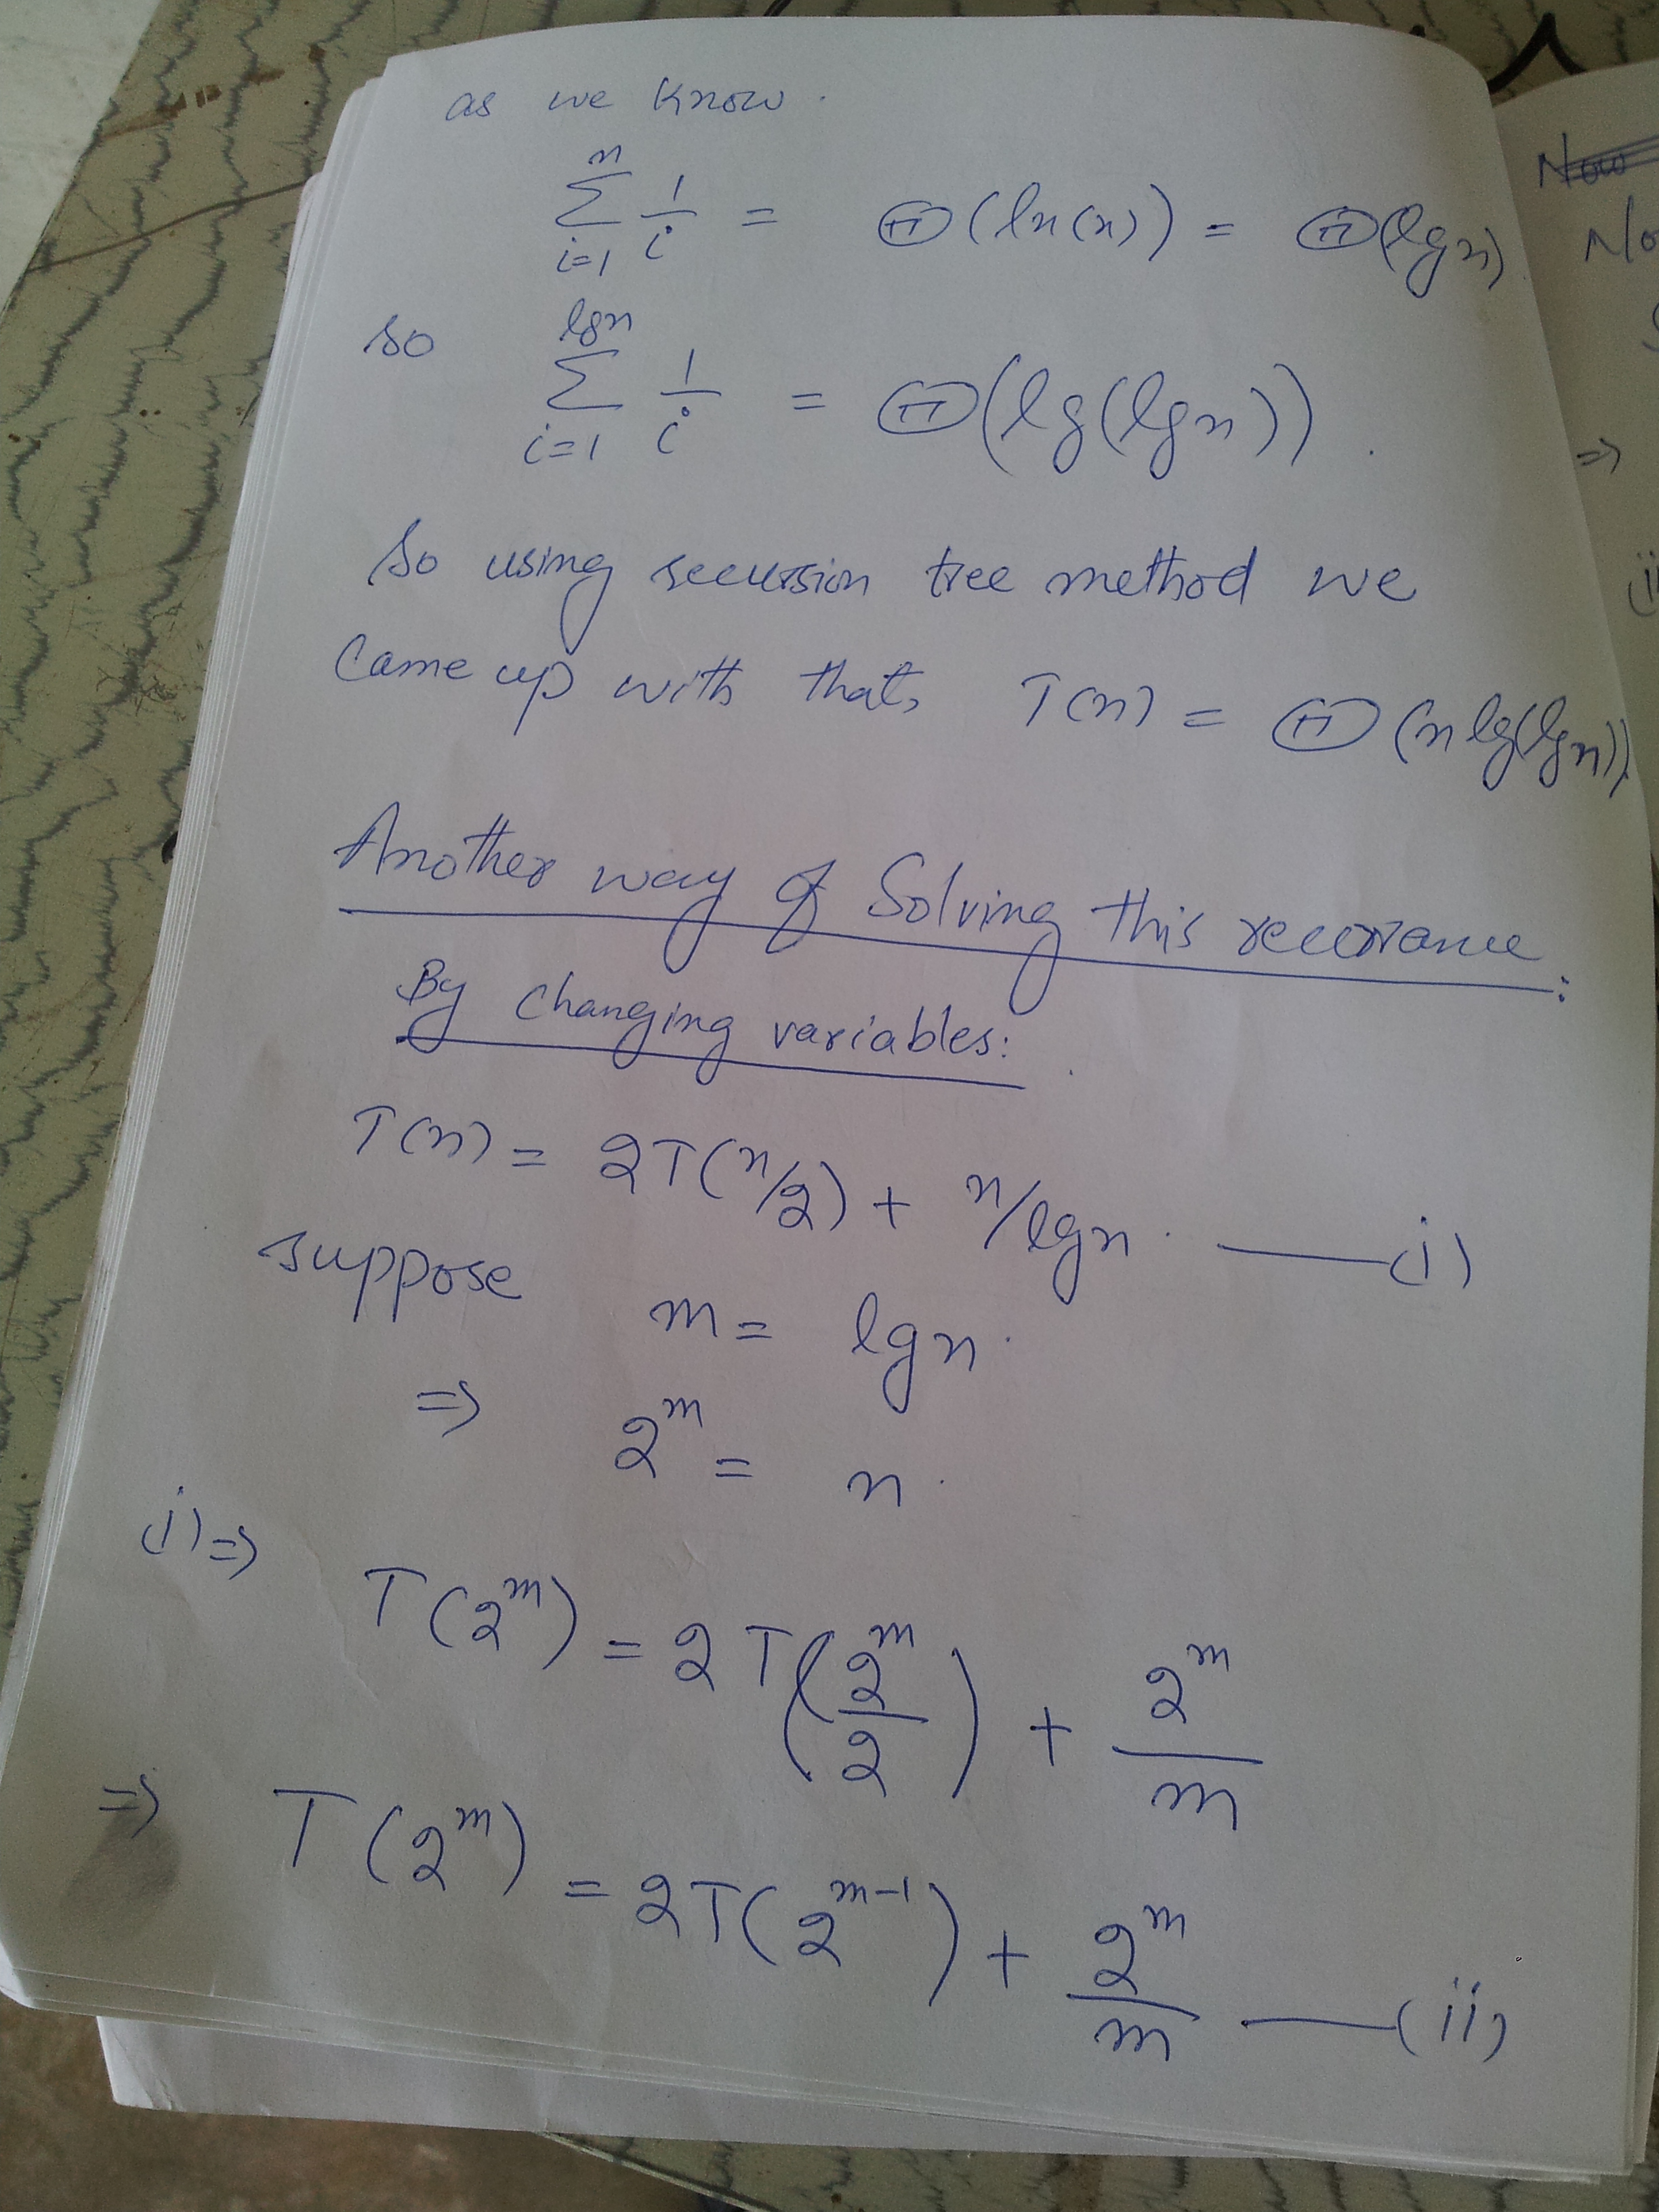 as we know.
n
∑ 1/i = Θ(ln(n)) = Θ(lgn)
i=1
so
lgn
∑ 1/i = Θ(lg(lgn)).
i=1
so using recursion tree method we
Came up with that, T(n) = Θ(n lg(lgn))
Another way of Solving this recurrence:
By Changing variables:
T(n) = 2T(n/2) + n/lgn. —— i)
suppose m = lgn.
⇒ 2^m = n.
i) ⇒
T(2^m) = 2T(2^m/2) + 2^m/m
⇒ T(2^m) = 2T(2^(m-1)) + 2^m/m —— (ii)
⇒